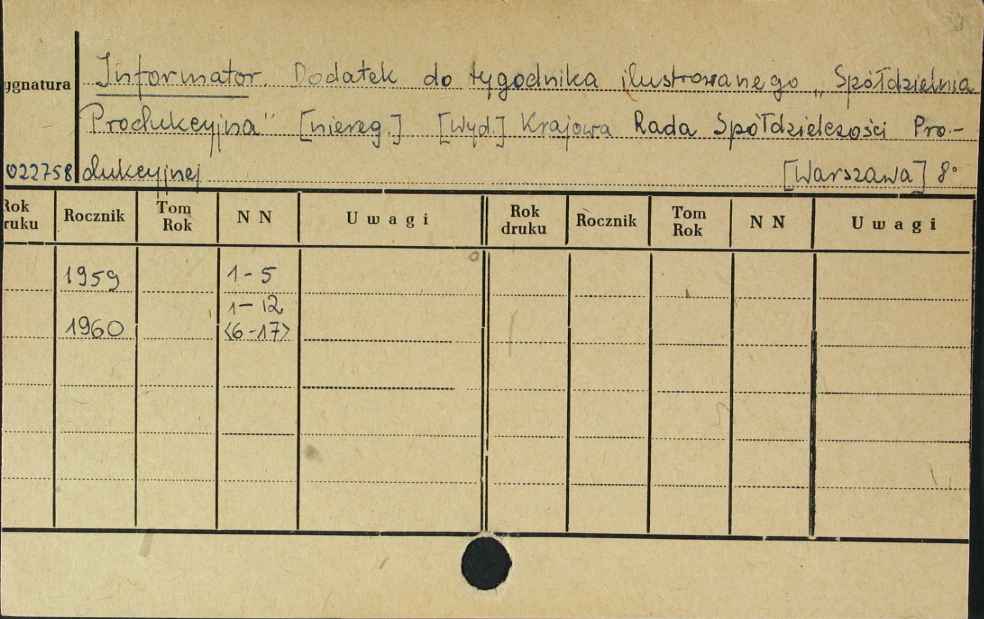 ygnatura Informator Dodatek do tygodnika ilustrowanego „Spółdzielnia
Produkcyjna" [niereg.] [Wyd.] Krajowa Rada Spółdzielczości Pro-
022758 dukcyjnej [Warszawa] 8°
Rok ruku Rocznik Tom Rok N N Uwagi Rok druku Rocznik Tom Rok N N Uwagi
1959 1-5
1-12
1960 <6-17>